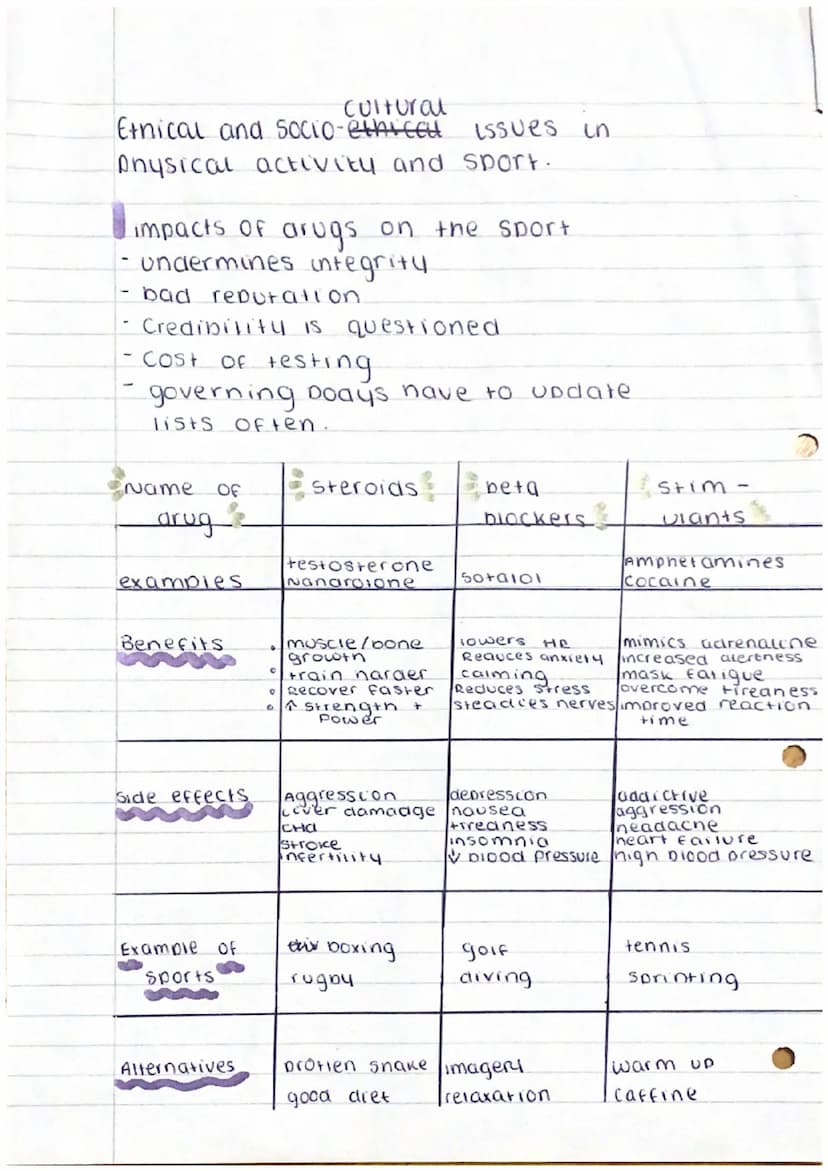 cultural
Ethical and socio-ethical issues in
physical activity and sport.
impacts of drugs on the sport
- undermines integrity
- bad reputation
- credibility is questioned
- cost of testing
- governing bodys have to update
lists often.
Name of drug | steroids | beta blockers | stim-ulants
examples | testosterone Nandrolone | sotalol | Amphetamines cocaine
Benefits
• muscle/bone growth
• train harder
• Recover faster
• ↑ strength + Power
lowers HR
Reduces anxiety
calming
Reduces stress
steadies nerves
mimics adrenaline
increased alertness
mask fatigue
overcome tiredness
improved reaction time
side effects
Aggression
Liver damadge
CHD
stroke
infertility
depression
nausea
tiredness
insomnia
↓ blood pressure
addictive
aggression
headache
heart failure
high blood pressure
Example of sports
boxing
rugby
golf
diving
tennis
sprinting
Alternatives
protien shake
good diet
imagery
relaxation
warm up
caffine